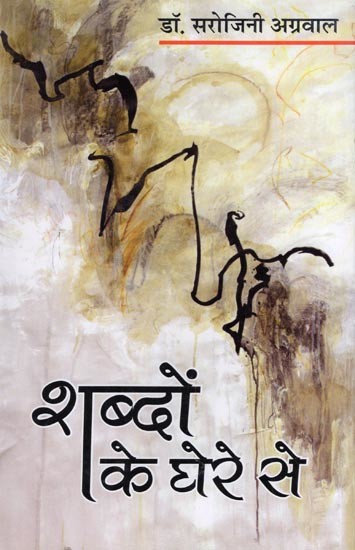 डॉ. सरोजिनी अग्रवाल
शब्दों
के घेरे से